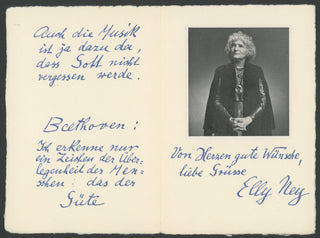 Auch die Musik
ist ja dazu da,
dass Gott nicht
vergessen werde.
Beethoven:
Ich erkenne nur
ein Zeichen der Über-
legenheit des Men-
schen: das der
Güte
Von Herzen gute Wünsche,
liebe Grüsse
Elly Ney